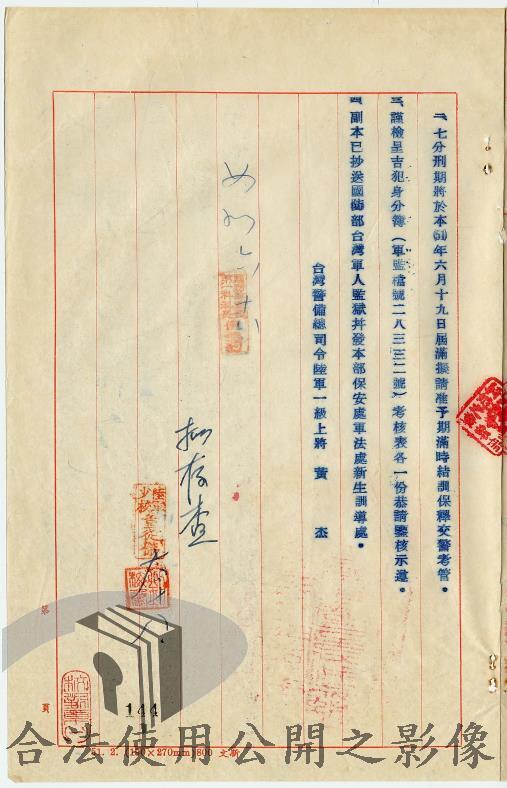 二、七分刑期將於本(51)年六月十九日屆滿擬請准予期滿時結訓保釋交警考管。
三、謹檢呈吉犯身分簿(軍監檔號二八三三二號)考核表各一份恭請鑒核示遵。
四、副本已抄送國防部台灣軍人監獄幷發本部保安處軍法處新生訓導處。
台灣警備總司令陸軍一級上將 黃 杰
擬存查
第
頁
144
合法使用公開之影像